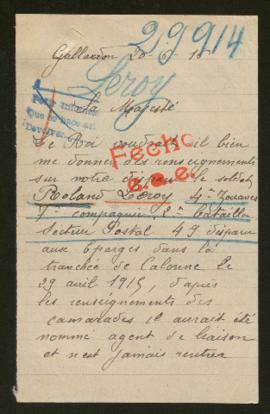 29914
Gallardon 20-6-15
Leroy
Sa Majesté
Le Roi voudrait il bien
me donner des renseignements
sur notre disparu le soldat,
Fecho
e.e.e.
Roland Leroy 4e Zouaves
7e compagnie 2e Bataillon
Secteur Postal 49 disparu
aux éparges dans la
tranchée de Calonne le
29 avril 1915, d'après
les renseignements des
camarades il aurait été
nommé agent de liaison
et n'est jamais rentré